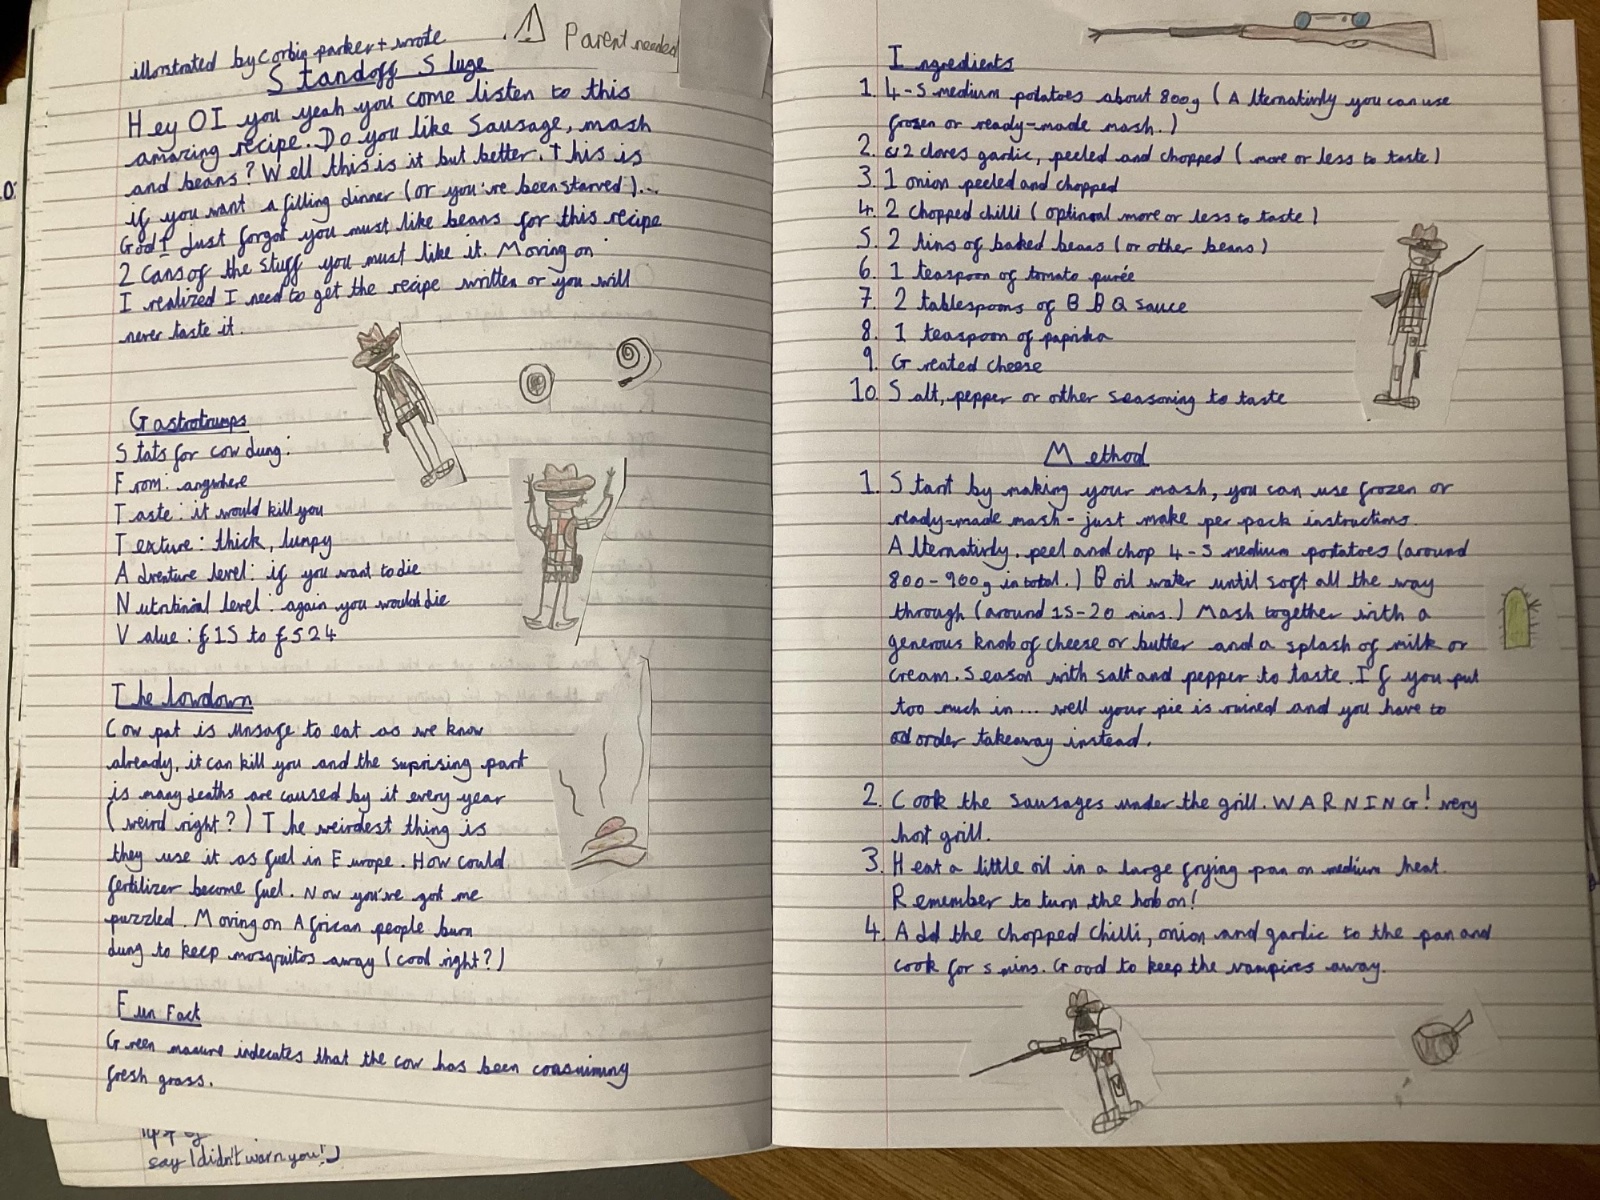 illorstrated by Corbin parker + wrote
Parent needed
Standoff Sluge
Hey OI you yeah you come listen to this
amazing recipe. Do you like Sausage, mash
and beans? Well this is it but better. This is
if you want a filling dinner (or you're been starved)...
God I just forgot you must like beans for this recipe
2 cans of the stuff you must like it. Moving on
I realized I need to get the recipe written or you will
never taste it.
Gastrotrumps
Stats for cow dung:
From: anywhere
Taste: it would kill you
Texture: thick, lumpy
Adventure level: if you want to die
Nutritinial level: again you would die
Value: £15 to £524
The lowdown
Cow pat is unsage to eat as we know
already, it can kill you and the suprising part
is many deaths are caused by it every year
(weird right?) The weirdest thing is
they use it as fuel in Europe. How could
fertilizer become fuel. Now you've got me
puzzled. Moving on African people burn
dung to keep mosquitos away (cool right?)
Fun Fact
Green manure indecates that the cow has been consuming
fresh grass.
say I didn't warn you!)
Ingredients
1. 4-5 medium potatoes about 800g (Alternativly you can use
frozen or ready-made mash.)
2. 2 cloves garlic, peeled and chopped (more or less to taste)
3. 1 onion peeled and chopped
4. 2 chopped chilli (optinoal more or less to taste)
5. 2 tins of baked beans (or other beans)
6. 1 teaspoon of tomato purée
7. 2 tablespoons of BBQ sauce
8. 1 teaspoon of paprika
9. Greated cheese
10. Salt, pepper or other seasoning to taste
Method
1. Start by making your mash, you can use frozen or
ready-made mash - just make per pack instructions.
Alternativly. peel and chop 4-5 medium potatoes (around
800-900g in total.) Boil water until soft all the way
through (around 15-20 mins.) Mash together with a
generous knob of cheese or butter and a splash of milk or
cream. Season with salt and pepper to taste. If you put
too much in.... well your pie is ruined and you have to
order takeaway instead.
2. Cook the sausages under the grill. WARNING! very
hot grill.
3. Heat a little oil in a large frying pan on medium heat.
Remember to turn the hob on!
4. Add the chopped chilli, onion and garlic to the pan and
cook for 5 mins. Good to keep the vampires away.